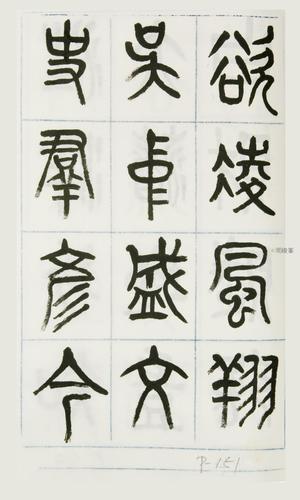 欲凌風翔
吳中盛文
史羣彥今
P-151